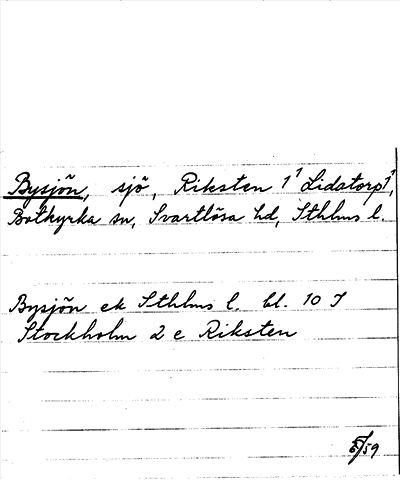 Bysjön, sjö, Riksten 1¹ Lidatorp 1¹,
Botkyrka sn, Svartlösa hd, Sthlms l.
Bysjön ek Sthlms l. bl. 10 I
Stockholm 2 c Riksten
5/59